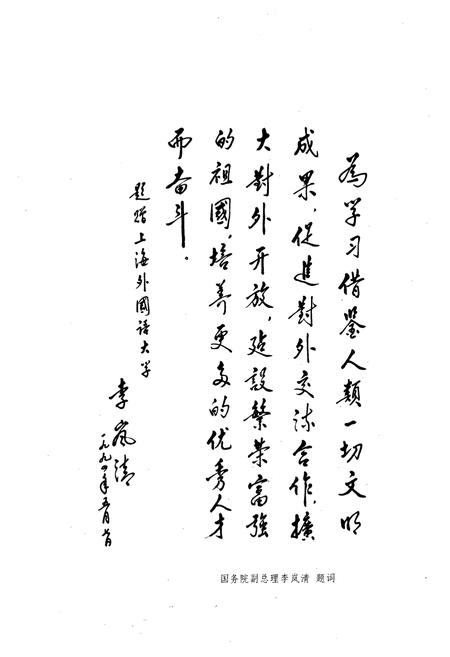 為学习借鑒人類一切文明
成果，促進對外交流合作，擴
大對外开放，建設繁荣富強
的祖國，培养更多的优秀人才
而奋斗。
题赠上海外國语大学
李岚清
一九九四年五月
国务院副总理李岚清 题词